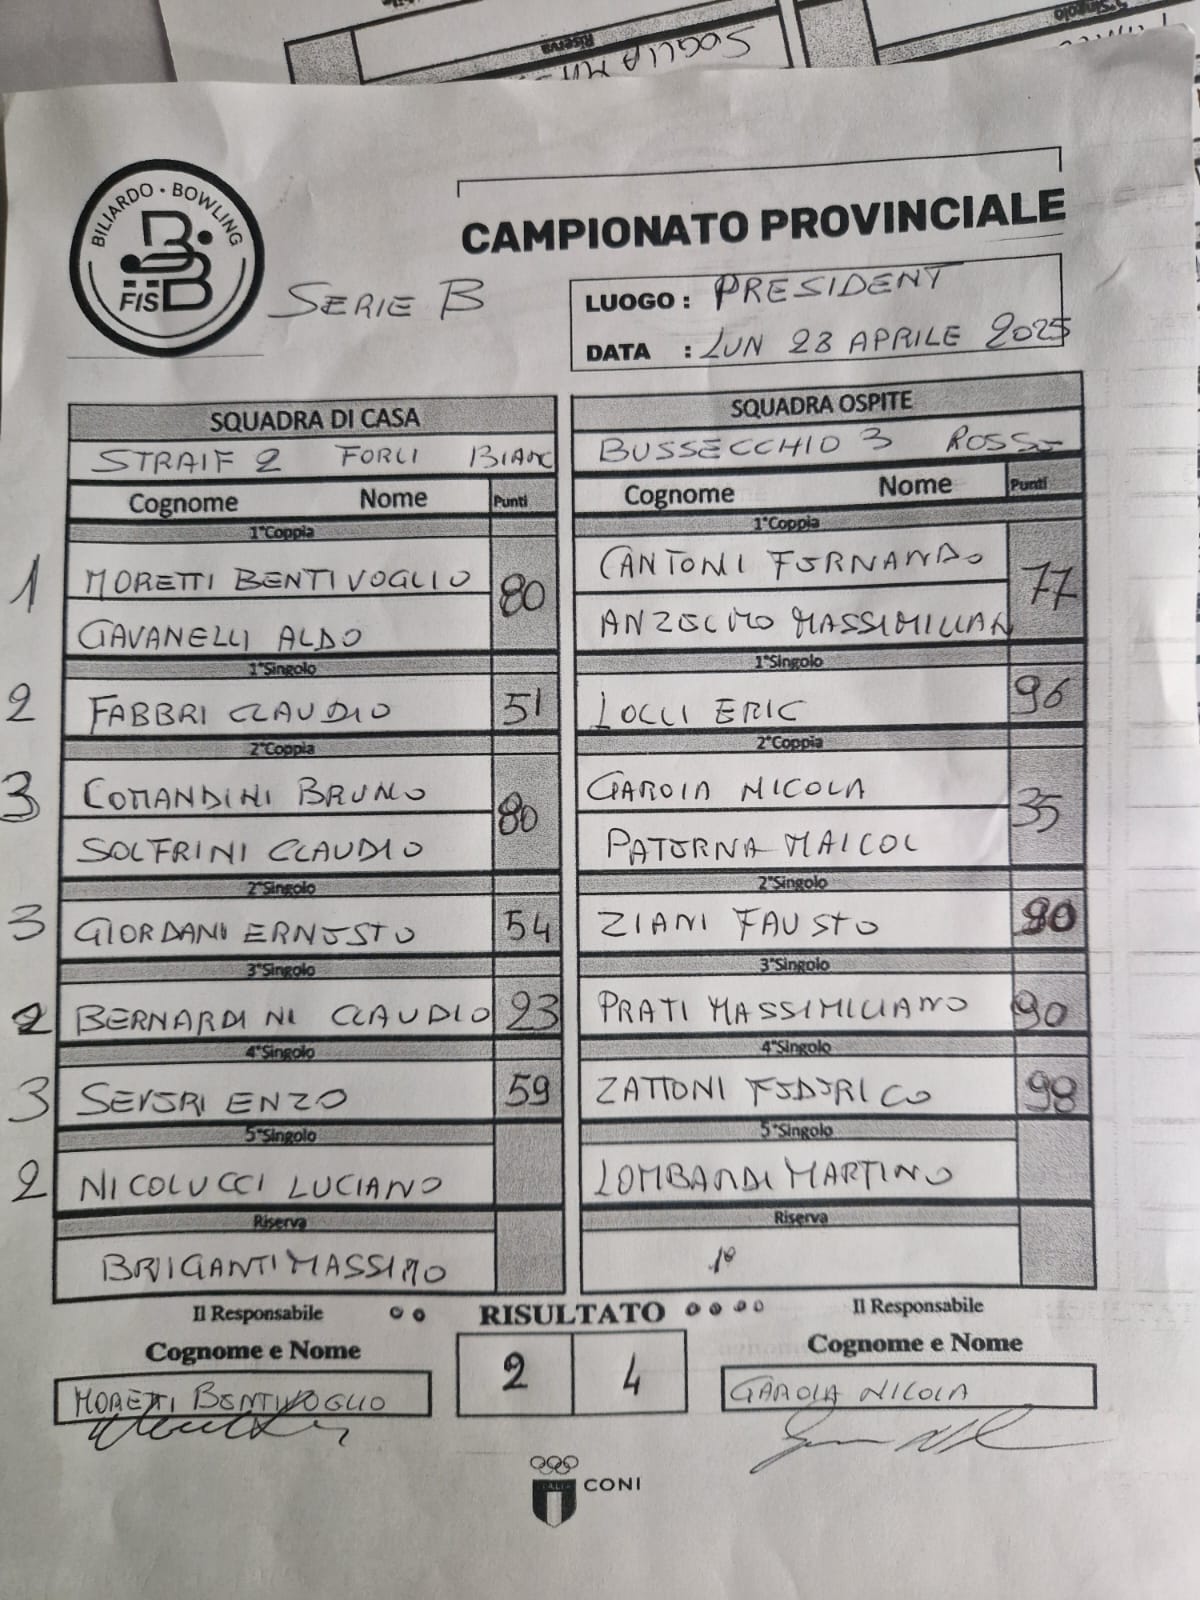 Riserva
SOGLIA
1°Singolo
BILIARDO · BOWLING
FISBB
SERIE B
CAMPIONATO PROVINCIALE
LUOGO : PRESIDENT
DATA : LUN 28 APRILE 2025
SQUADRA DI CASA SQUADRA OSPITE
STRAIF 2 FORLI BIANC BUSSECCHIO 3 ROSSO
Cognome Nome Punti Cognome Nome Punti
1°Coppia 1°Coppia
1 MORETTI BENTIVOGLIO 80 CANTONI FERNANDO 77
GAVANELLI ALDO ANZELMO MASSIMILIAN
1°Singolo 1°Singolo
2 FABBRI CLAUDIO 51 LOCCI ERIC 96
2°Coppia 2°Coppia
3 COMANDINI BRUNO 80 GAROIA NICOLA 35
SOLFRINI CLAUDIO PATERNA MAICOL
2°Singolo 2°Singolo
3 GIORDANI ERNESTO 54 ZIANI FAUSTO 90
3°Singolo 3°Singolo
2 BERNARDINI CLAUDIO 23 PRATI MASSIMILIANO 90
4°Singolo 4°Singolo
3 SEVERI ENZO 59 ZATTONI FEDERICO 98
5°Singolo 5°Singolo
2 NICOLUCCI LUCIANO LOMBARDI MARTINO
Riserva Riserva
BRIGANTI MASSIMO
Il Responsabile RISULTATO Il Responsabile
Cognome e Nome 2 4 Cognome e Nome
MORETTI BENTIVOGLIO GAROIA NICOLA
ITALIA CONI